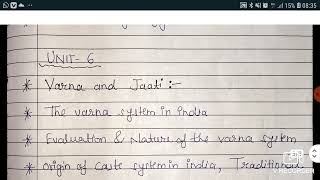 15% 08:35
UNIT-6
* Varna and Jaati :-
* The varna system in india
* Evaluation & Nature of the varna system
* origin of caste system in india, Traditional
V RECORDER